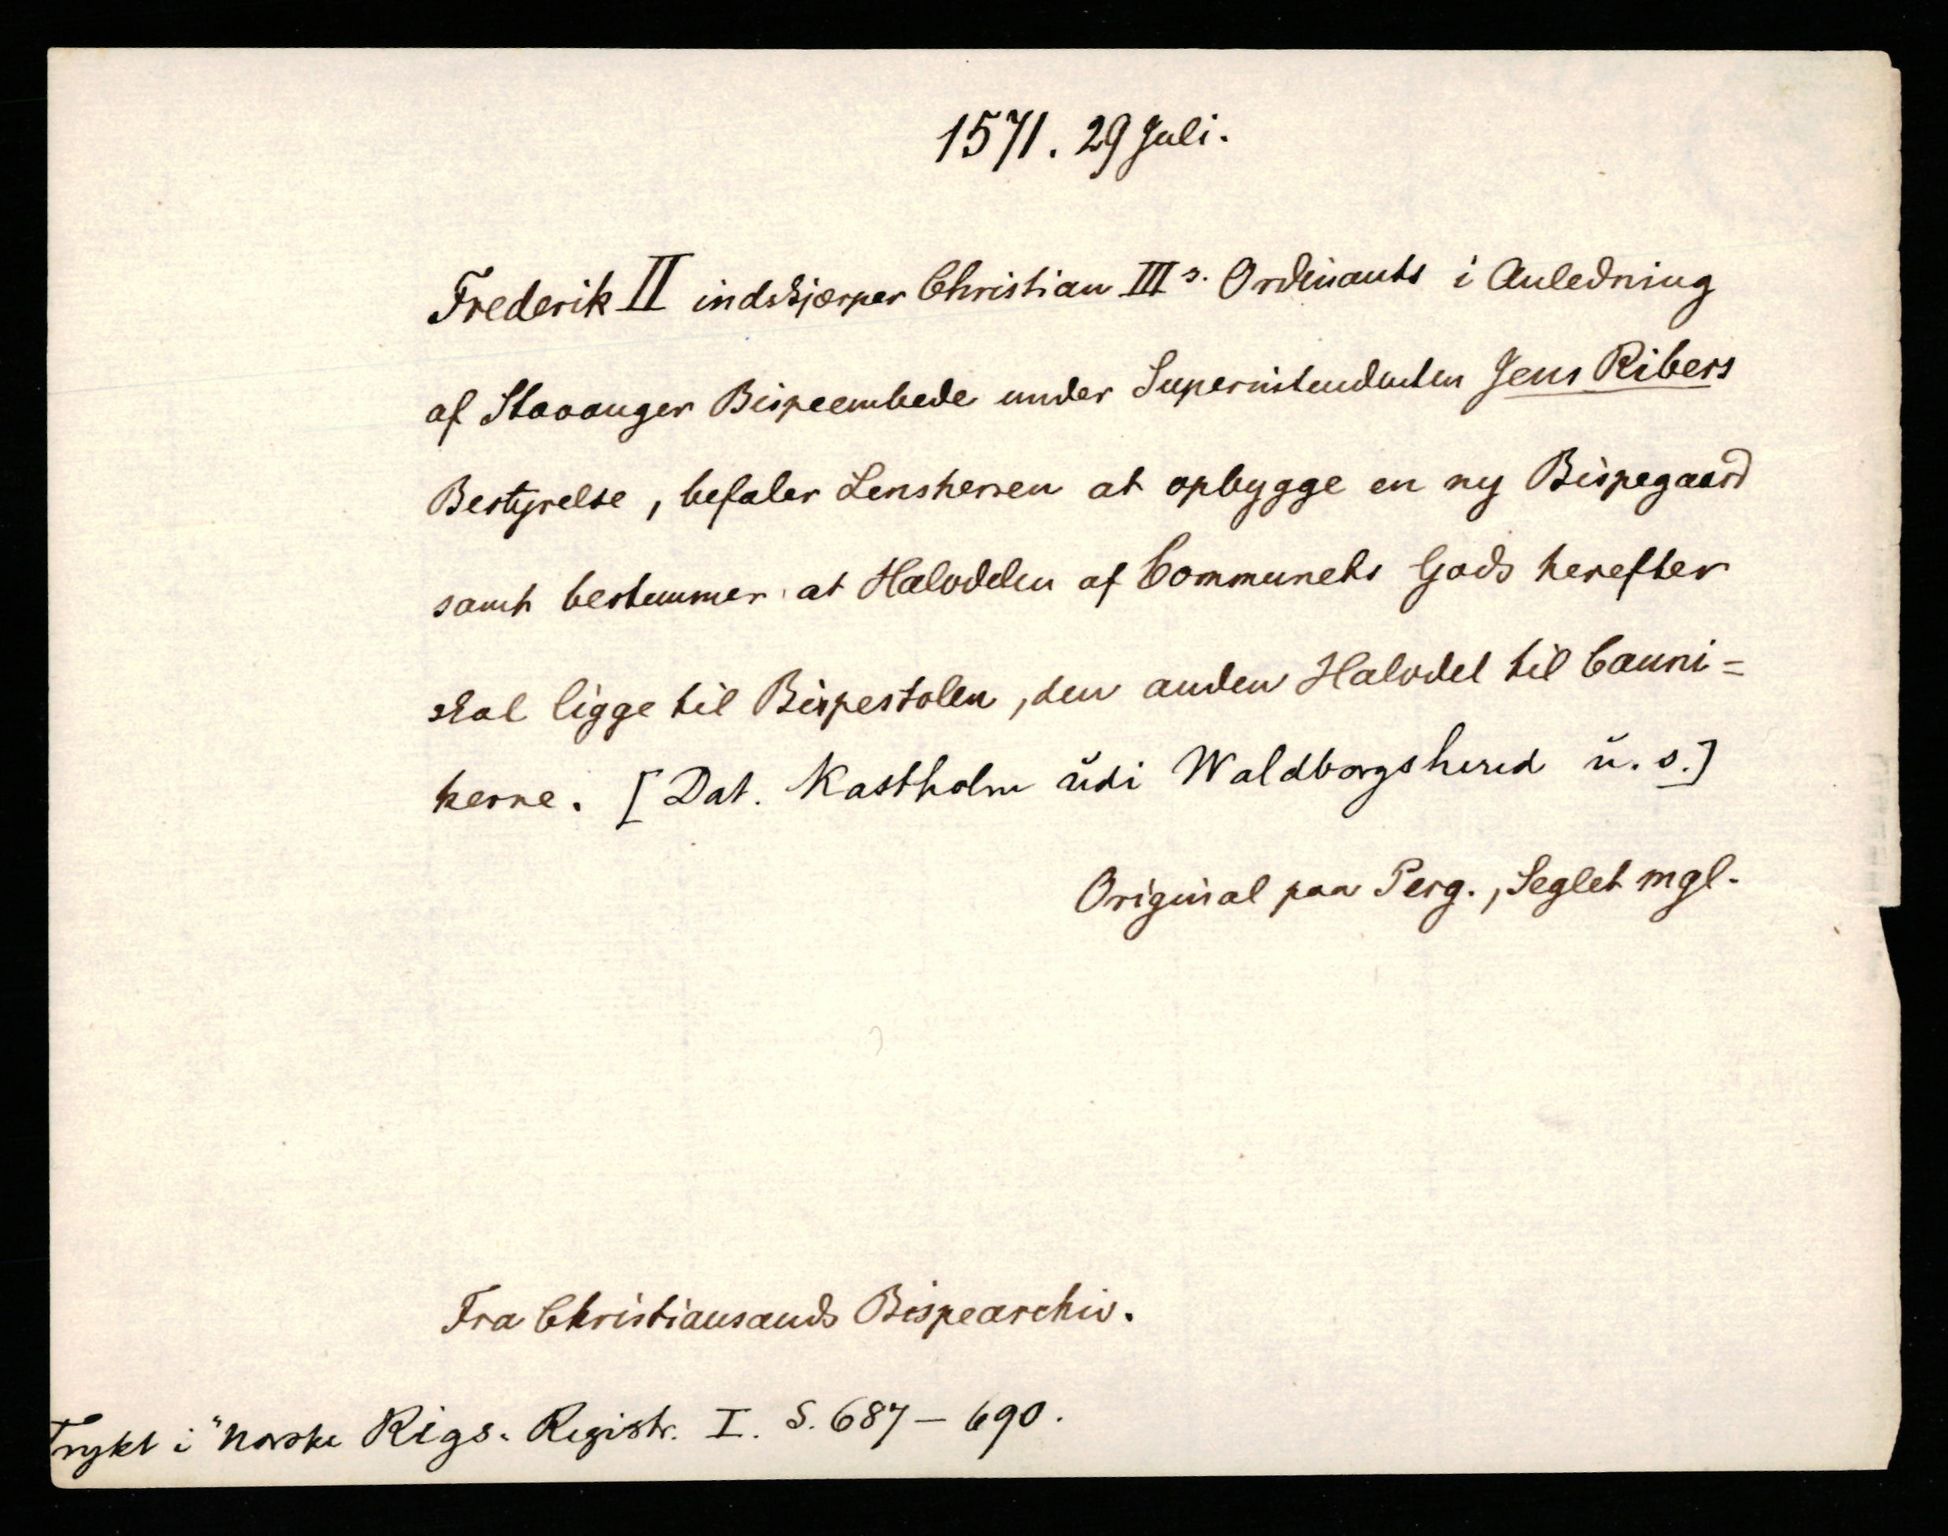 1571. 29 Juli.
Frederik II indskjærper Christian IIIs. Ordinants i Anledning
af Stavanger Bispeembede under Superintendenten Jens Ribers
Bestyrelse, befaler Lensherren at opbygge en ny Bispegaard
samt bestemmer at Halvdelen af Communets Gods herefter
skal ligge til Bispestolen, den anden Halvdel til Canni=
kerne. [Dat. Kastholm ŭdi Waldborgsherred ŭ. s.]
Original paa Perg., Seglet mgl.
Fra Christiansands Bispearchiv.
Trykt i "Norske Rigs. Registr. I. S. 687–690.